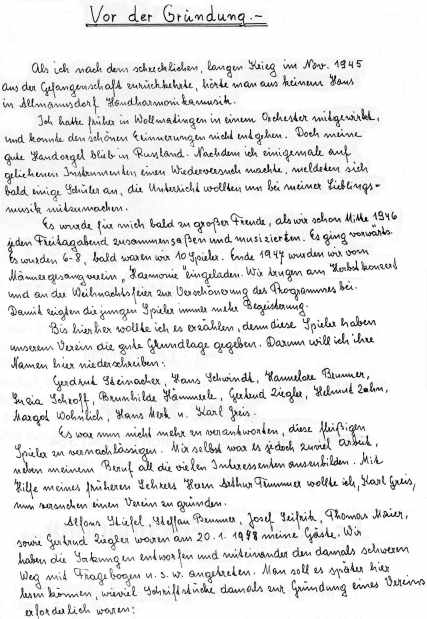 Vor der Gründung.-
Als ich nach dem schrecklichen, langen Krieg im Nov. 1945
aus der Gefangenschaft zurückkehrte, hörte man aus keinem Haus
in Allmannsdorf Handharmonikamusik.
Ich hatte früher in Wollmatingen in einem Orchester mitgewirkt,
und konnte den schönen Erinnerungen nicht entgehen. Doch meine
gute Handorgel blieb in Russland. Nachdem ich einigemale auf
geliehenen Instrumenten einen Wiederversuch machte, meldeten sich
bald einige Schüler an, die Unterricht wollten um bei meiner Lieblings-
musik mitzumachen.
Es wurde für mich bald zu großer Freude, als wir schon Mitte 1946
jeden Freitagabend zusammensaßen und musizierten. Es ging vorwärts.
Es wurden 6-8, bald waren wir 10 Spieler. Ende 1947 wurden wir vom
Männergesangverein "Harmonie" eingeladen. Wir trugen am Herbstkonzert
und an der Weihnachtsfeier zur Verschönerung des Programmes bei.
Damit zeigten die jungen Spieler immer mehr Begeisterung.
Bis hierher wollte ich es erzählen, denn diese Spieler haben
unserem Verein die gute Grundlage gegeben. Darum will ich ihre
Namen hier niederschreiben:
Gerdrut Steinacher, Hans Schwindt, Hannelore Brunner,
Luzia Schroff, Brunhilde Hämmerle, Gertrud Ziegler, Helmut Zahn,
Margot Wohnlich, Hans Merk u. Karl Greis.
Es war nun nicht mehr zu verantworten, diese fleißigen
Spieler zu vernachlässigen. Mir selbst war es jedoch zuviel Arbeit,
neben meinem Beruf all die vielen Interessenten auszubilden. Mit
Hilfe meines früheren Lehrers Herrn Arthur Trummer wollte ich, Karl Greis,
nun versuchen einen Verein zu gründen.
Alfons Stiefel, Steffan Brunner, Josef Seifrik, Thomas Maier,
sowie Gertrud Ziegler waren am 20. 1. 1948 meine Gäste. Wir
haben die Satzungen entworfen und miteinander den damals schweren
Weg mit Fragebogen u. s. w. angetreten. Man soll es später hier
lesen können, wieviel Schriftstücke damals zur Gründung eines Vereins
erforderlich waren: